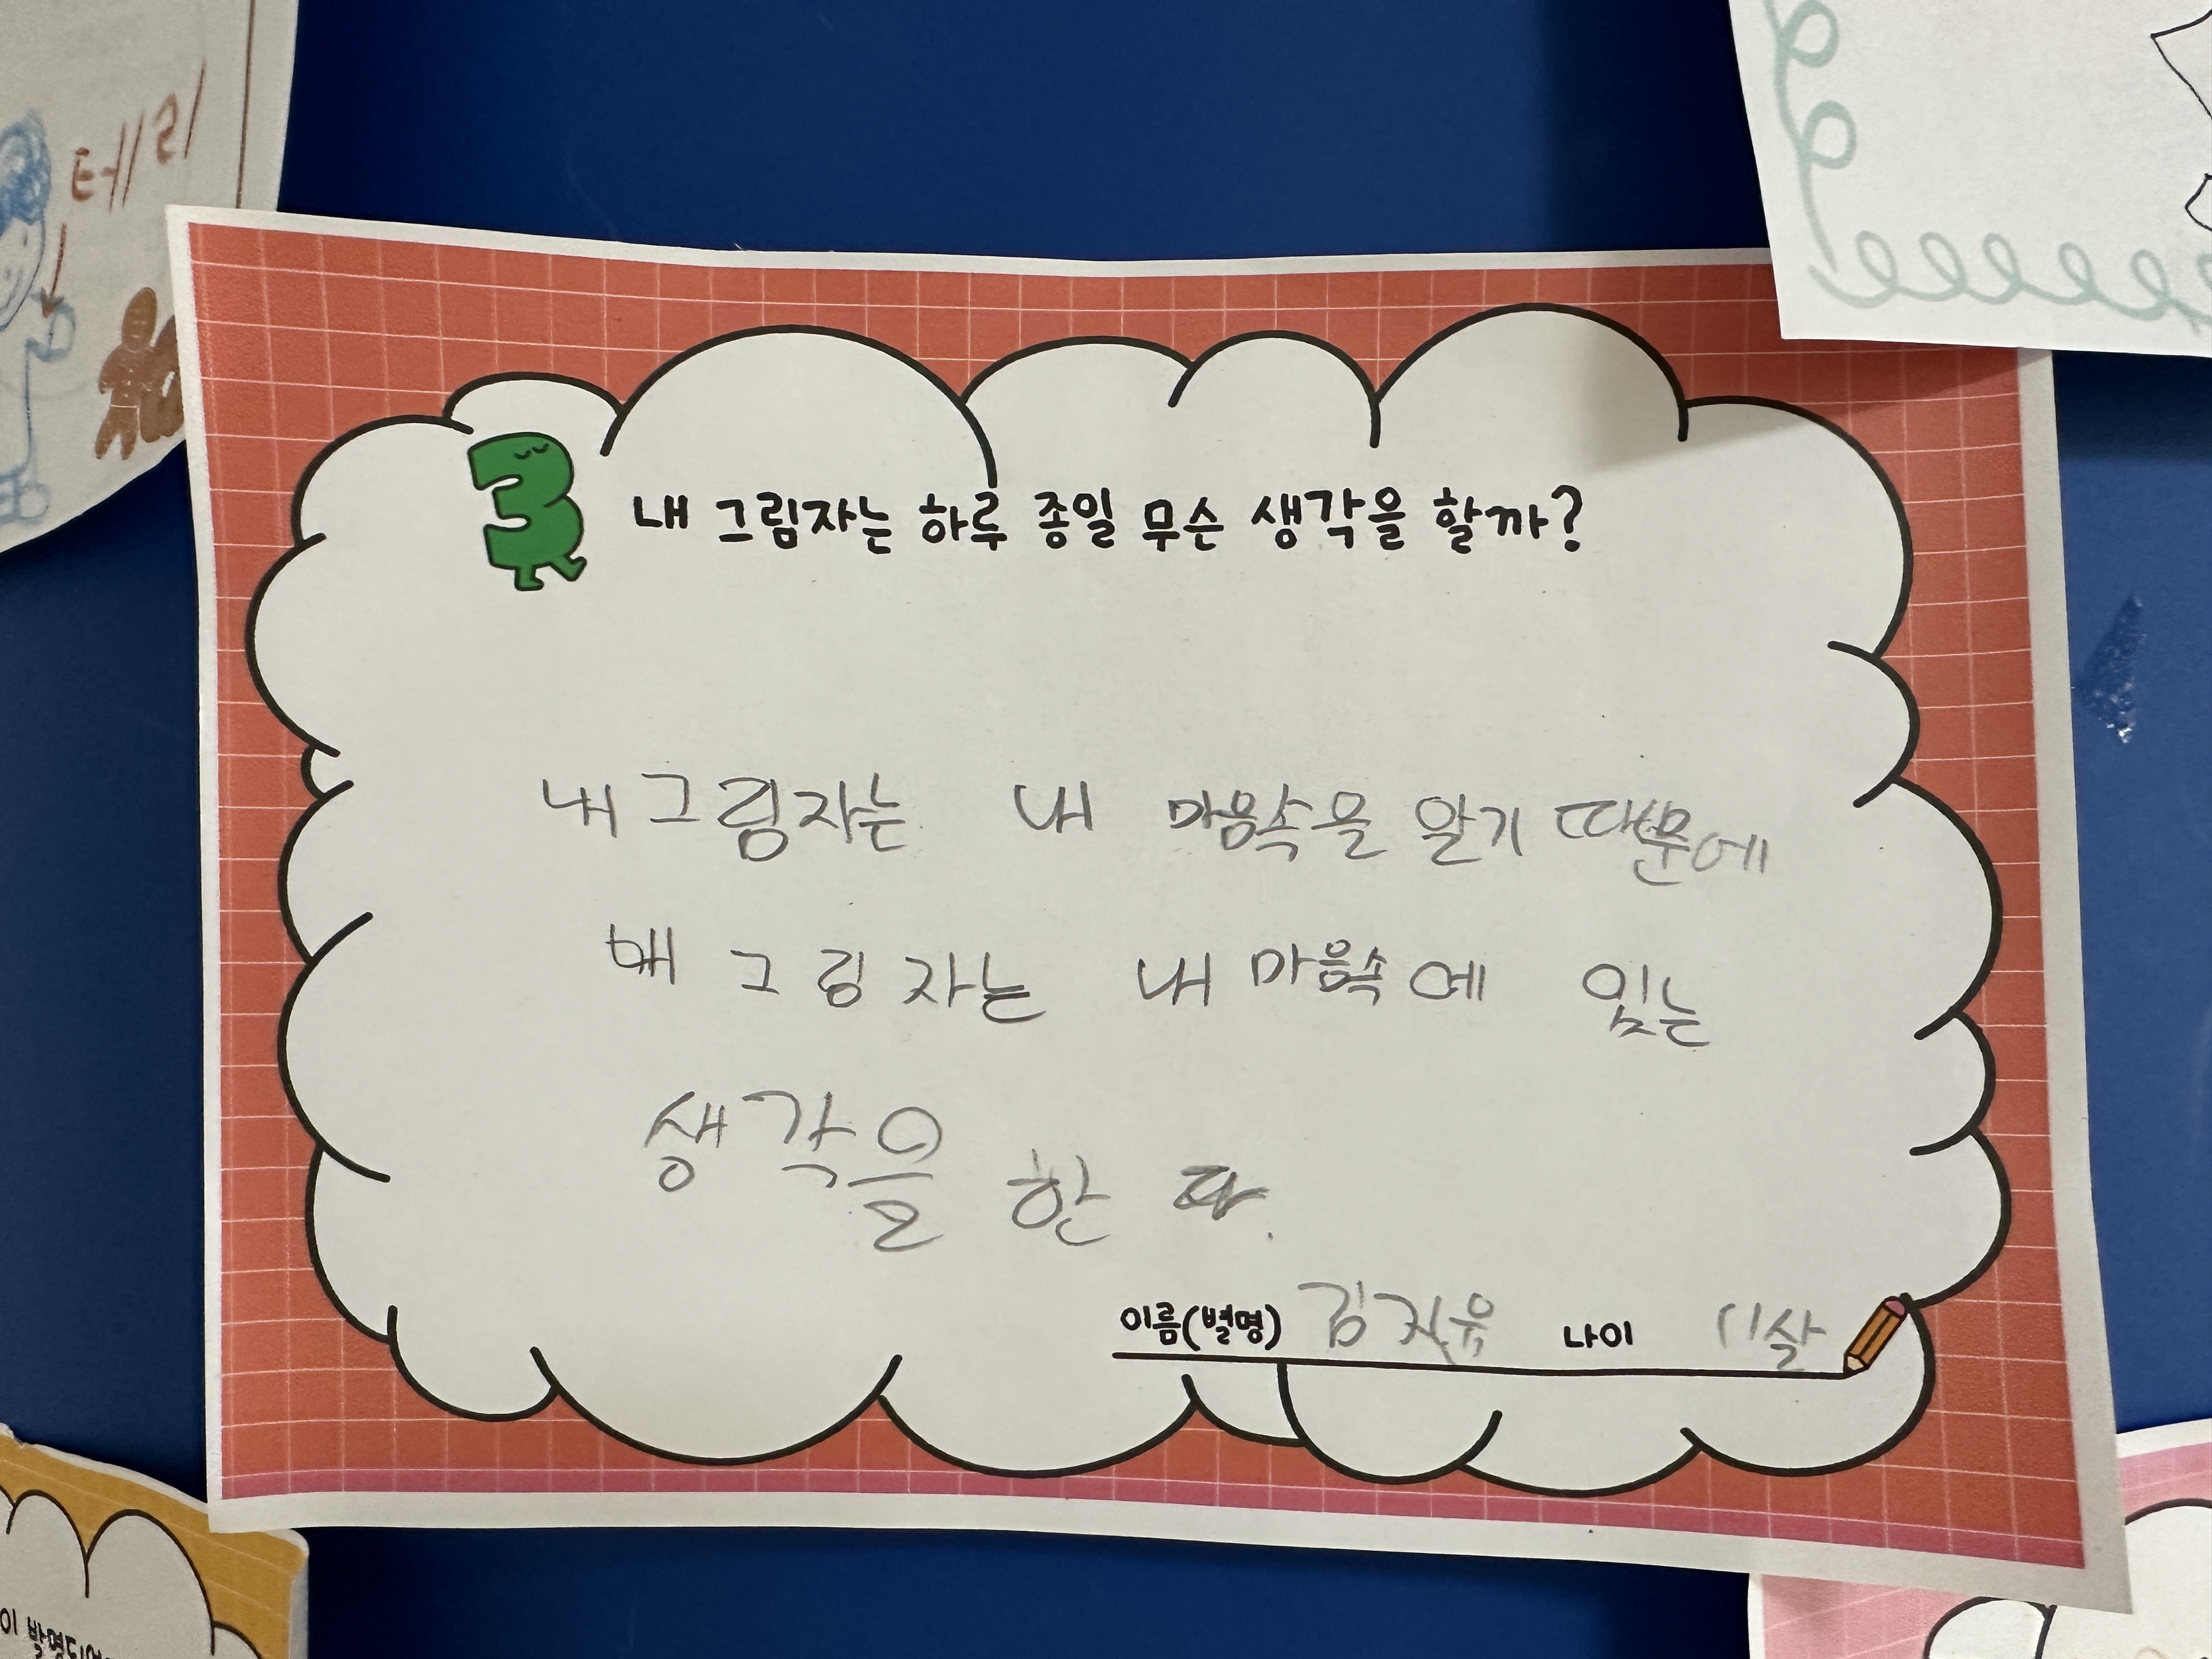 테리
3 내 그림자는 하루 종일 무슨 생각을 할까?
내 그림자는 내 마음속을 알기 때문에
내 그림자는 내 마음속에 있는
생각을 한다.
이름(별명) 김지유 나이 11살